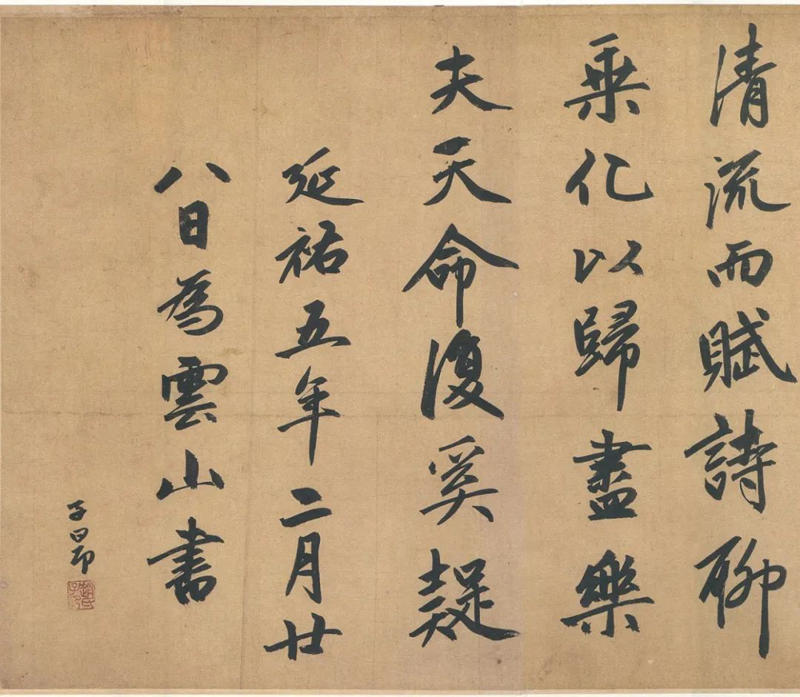 清流而賦詩聊
乗化以歸盡樂
夫天命復奚疑
延祐五年二月廿
八日為雲山書
子昂